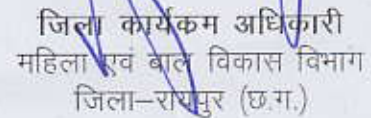 जिला कार्यकम अधिकारी
महिला एवं बाल विकास विभाग
जिला–रायपुर (छ.ग.)